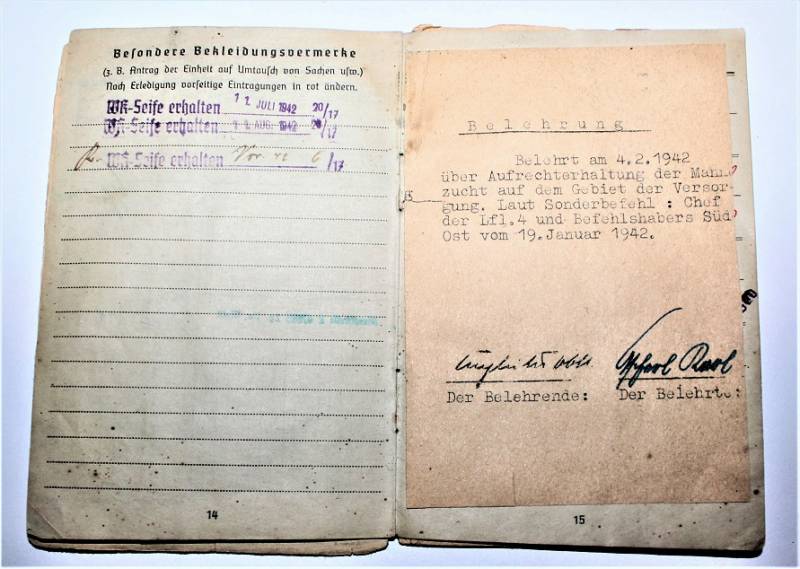 Besondere Bekleidungsvermerke
(z. B. Antrag der Einheit auf Umtausch von Sachen usw.)
Nach Erledigung vorseitige Eintragungen in rot ändern.
WK-Seife erhalten 11. JULI 1942 20/17
WK-Seife erhalten 11. AUG. 1942 20/17
WK-Seife erhalten 6/17
14
Belehrung
Belehrt am 4.2.1942
über Aufrechterhaltung der Mann
zucht auf dem Gebiet der Versor-
gung. Laut Sonderbefehl : Chef
der Lfl.4 und Befehlshabers Süd
Ost vom 19.Januar 1942.
Der Belehrende: Der Belehrte:
15